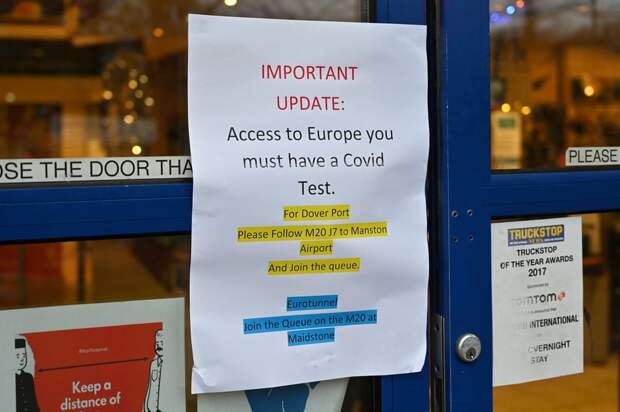 IMPORTANT
UPDATE:
Access to Europe you
must have a Covid
Test.
For Dover Port
Please Follow M20 J7 to Manston
Airport
And Join the queue.
Eurotunnel
Join the Queue on the M20 at
Maidstone
OSE THE DOOR THA
PLEASE
TRUCKSTOP
NEWS
TRUCKSTOP
OF THE YEAR AWARDS
2017
OMTOM
INTERNATIONAL
OVERNIGHT
STAY
Keep a
distance of